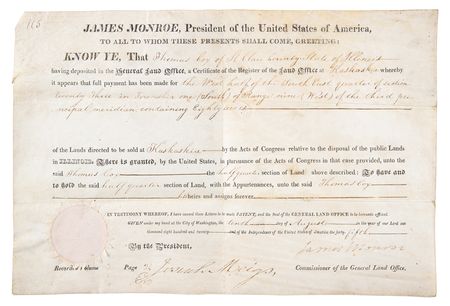 165
JAMES MONROE, President of the United States of America,
TO ALL TO WHOM THESE PRESENTS SHALL COME, GREETING:
KNOW YE, That Thomas Coy of St Clair County State of Illinois
having deposited in the General Land Office, a Certificate of the Register of the Land Office at Kaskaskia whereby
it appears that full payment has been made for the West half of the South East quarter of section
twenty three in Township one (South) of Range nine (West) of the third prin
cipal meridian containing Eighty acres
of the Lands directed to be sold at Kaskaskia by the Acts of Congress relative to the disposal of the public Lands
in ILLINOIS. There is granted, by the United States, in pursuance of the Acts of Congress in that case provided, unto the
said Thomas Coy the half quarter section of Land above described: To have and
to hold the said half quarter section of Land, with the Appurtenances, unto the said Thomas Coy
heirs and assigns forever.
IN TESTIMONY WHEREOF, I have caused these Letters to be made PATENT, and the SEAL of the GENERAL LAND OFFICE to be hereunto affixed.
GIVEN under my hand at the City of Washington, the day of August in the year of our Lord one
thousand eight hundred and twenty and of the Independence of the United States of America the forty fifth
By the President, James Monroe
Record of Volume Page Josiah Meigs Commissioner of the General Land Office.